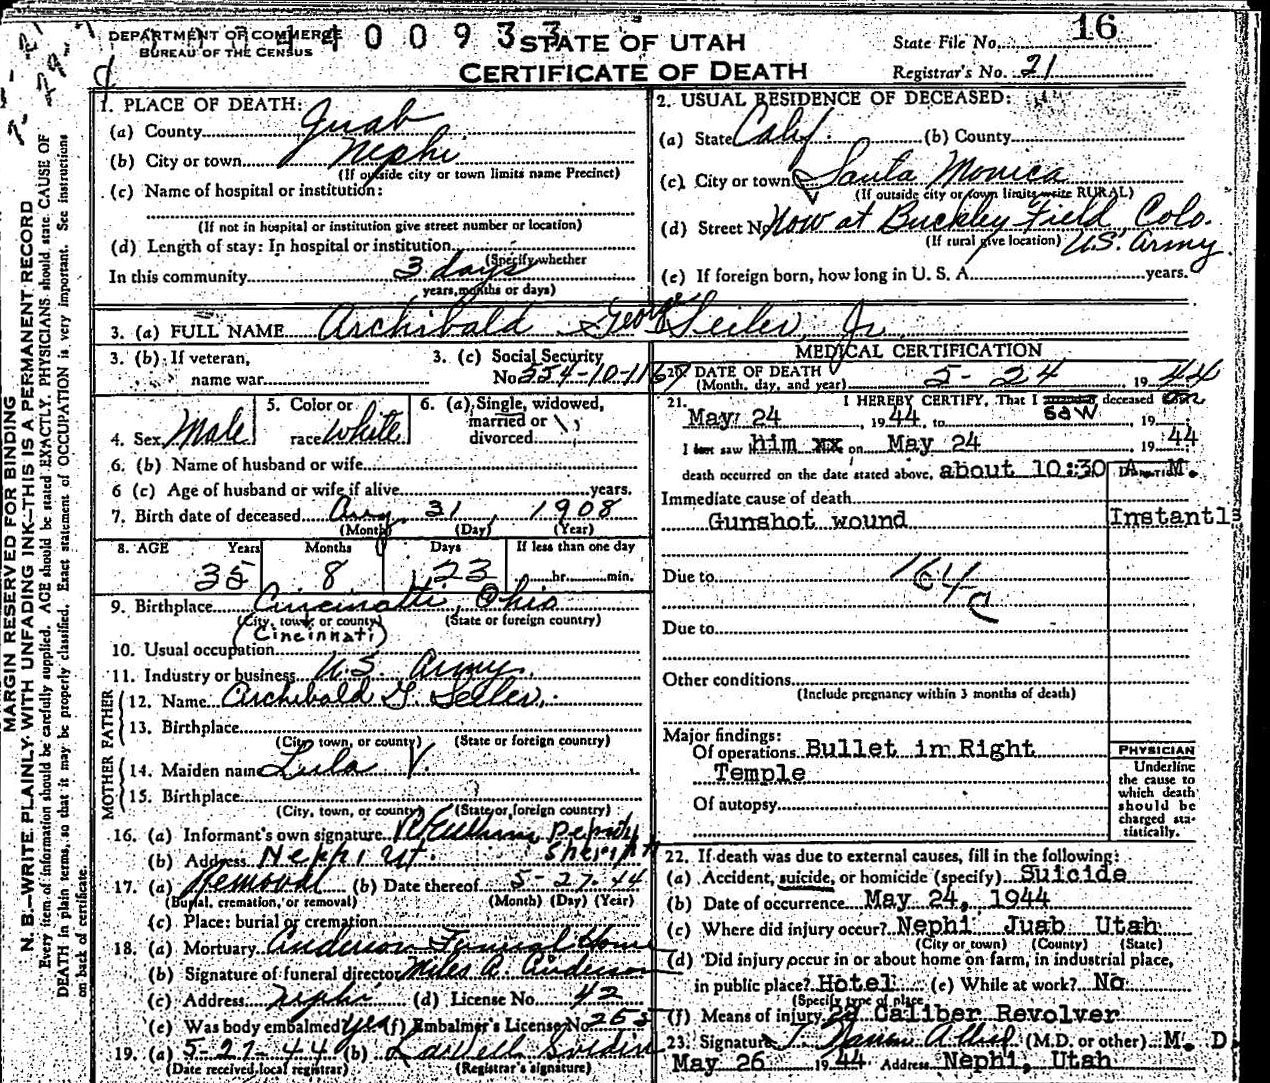 DEPARTMENT OF COMMERCE
BUREAU OF THE CENSUS
0 0 9 3 3
STATE OF UTAH
CERTIFICATE OF DEATH
State File No. 16
Registrar's No. 21
MARGIN RESERVED FOR BINDING
N. B.—WRITE PLAINLY WITH UNFADING INK—THIS IS A PERMANENT RECORD
Every item of information should be carefully supplied. AGE should be stated EXACTLY. PHYSICIANS should state CAUSE OF
DEATH in plain terms, so that it may be properly classified. Exact statement of OCCUPATION is very important. See instructions
on back of certificate.
1. PLACE OF DEATH:
(a) County Juab
(b) City or town Nephi
(If outside city or town limits name Precinct)
(c) Name of hospital or institution:
(If not in hospital or institution give street number or location)
(d) Length of stay: In hospital or institution
(Specify whether
In this community 3 days
years, months or days)
2. USUAL RESIDENCE OF DECEASED:
(a) State Calif. (b) County
(c) City or town Santa Monica
(If outside city or town limits write RURAL)
(d) Street No. Now at Buckley Field Colo.
(If rural give location) U.S. Army
(e) If foreign born, how long in U. S. A. years.
3. (a) FULL NAME Archibald George Seiler, Jr.
3. (b) If veteran,
name war
3. (c) Social Security
No.
4. Sex Male
5. Color or
race White
6. (a) Single, widowed,
married or
divorced
6. (b) Name of husband or wife
6 (c) Age of husband or wife if alive years.
7. Birth date of deceased Aug. 31, 1908
(Month) (Day) (Year)
8. AGE Years Months Days If less than one day
35 8 23 hr. min.
9. Birthplace Cincinatti, Ohio
(City, town, or county) (State or foreign country)
(Cincinnati)
10. Usual occupation
11. Industry or business U.S. Army
FATHER
12. Name Archibald G. Seiler,
13. Birthplace
(City, town, or county) (State or foreign country)
MOTHER
14. Maiden name Lula V.
15. Birthplace
(City, town, or county) (State or foreign country)
16. (a) Informant's own signature Deputy
(b) Address Nephi Ut. Sheriff
17. (a) Removal (b) Date thereof 5-27-44
(Burial, cremation, or removal) (Month) (Day) (Year)
(c) Place: burial or cremation
18. (a) Mortuary Anderson Funeral Home
(b) Signature of funeral director Miles A. Anderson
(c) Address Nephi (d) License No. 42
(e) Was body embalmed yes (f) Embalmer's License No.
19. (a) 5-27-44 (b)
(Date received local registrar) (Registrar's signature)
MEDICAL CERTIFICATION
20. DATE OF DEATH
(Month, day, and year) 5-24 1944
21. I HEREBY CERTIFY, That I saw deceased on
May 24, 1944, to , 19
I saw him xx on May 24 1944
death occurred on the date stated above, about 10:30 A. M.
Immediate cause of death
Gunshot wound Instantly
Due to 164c
Due to
Other conditions
(Include pregnancy within 3 months of death)
Major findings:
Of operations Bullet in Right
Temple
Of autopsy
PHYSICIAN
Underline
the cause to
which death
should be
charged sta-
tistically.
22. If death was due to external causes, fill in the following:
(a) Accident, suicide, or homicide (specify) Suicide
(b) Date of occurrence May 24, 1944
(c) Where did injury occur? Nephi Juab Utah
(City or town) (County) (State)
(d) Did injury occur in or about home on farm, in industrial place,
in public place? Hotel (e) While at work? No
(Specify type of place)
(f) Means of injury Caliber Revolver
23. Signature (M.D. or other) M. D.
May 26 1944 Address Nephi, Utah